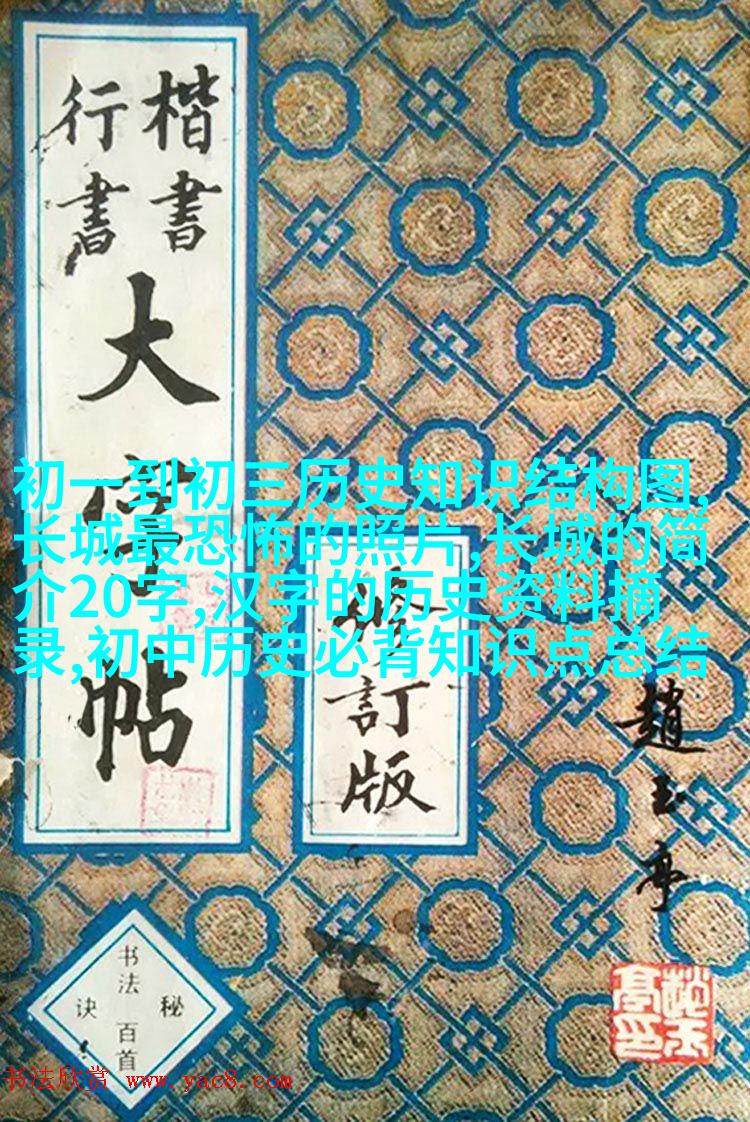 楷書
行書
大字帖
修訂版
趙玉亭
书法
百首
秘
诀
初一到初三历史知识结构图,
长城最恐怖的照片,长城的简
介20字,汉字的历史资料摘
录,初中历史必背知识点总结
书法欣赏 www.yac8.com